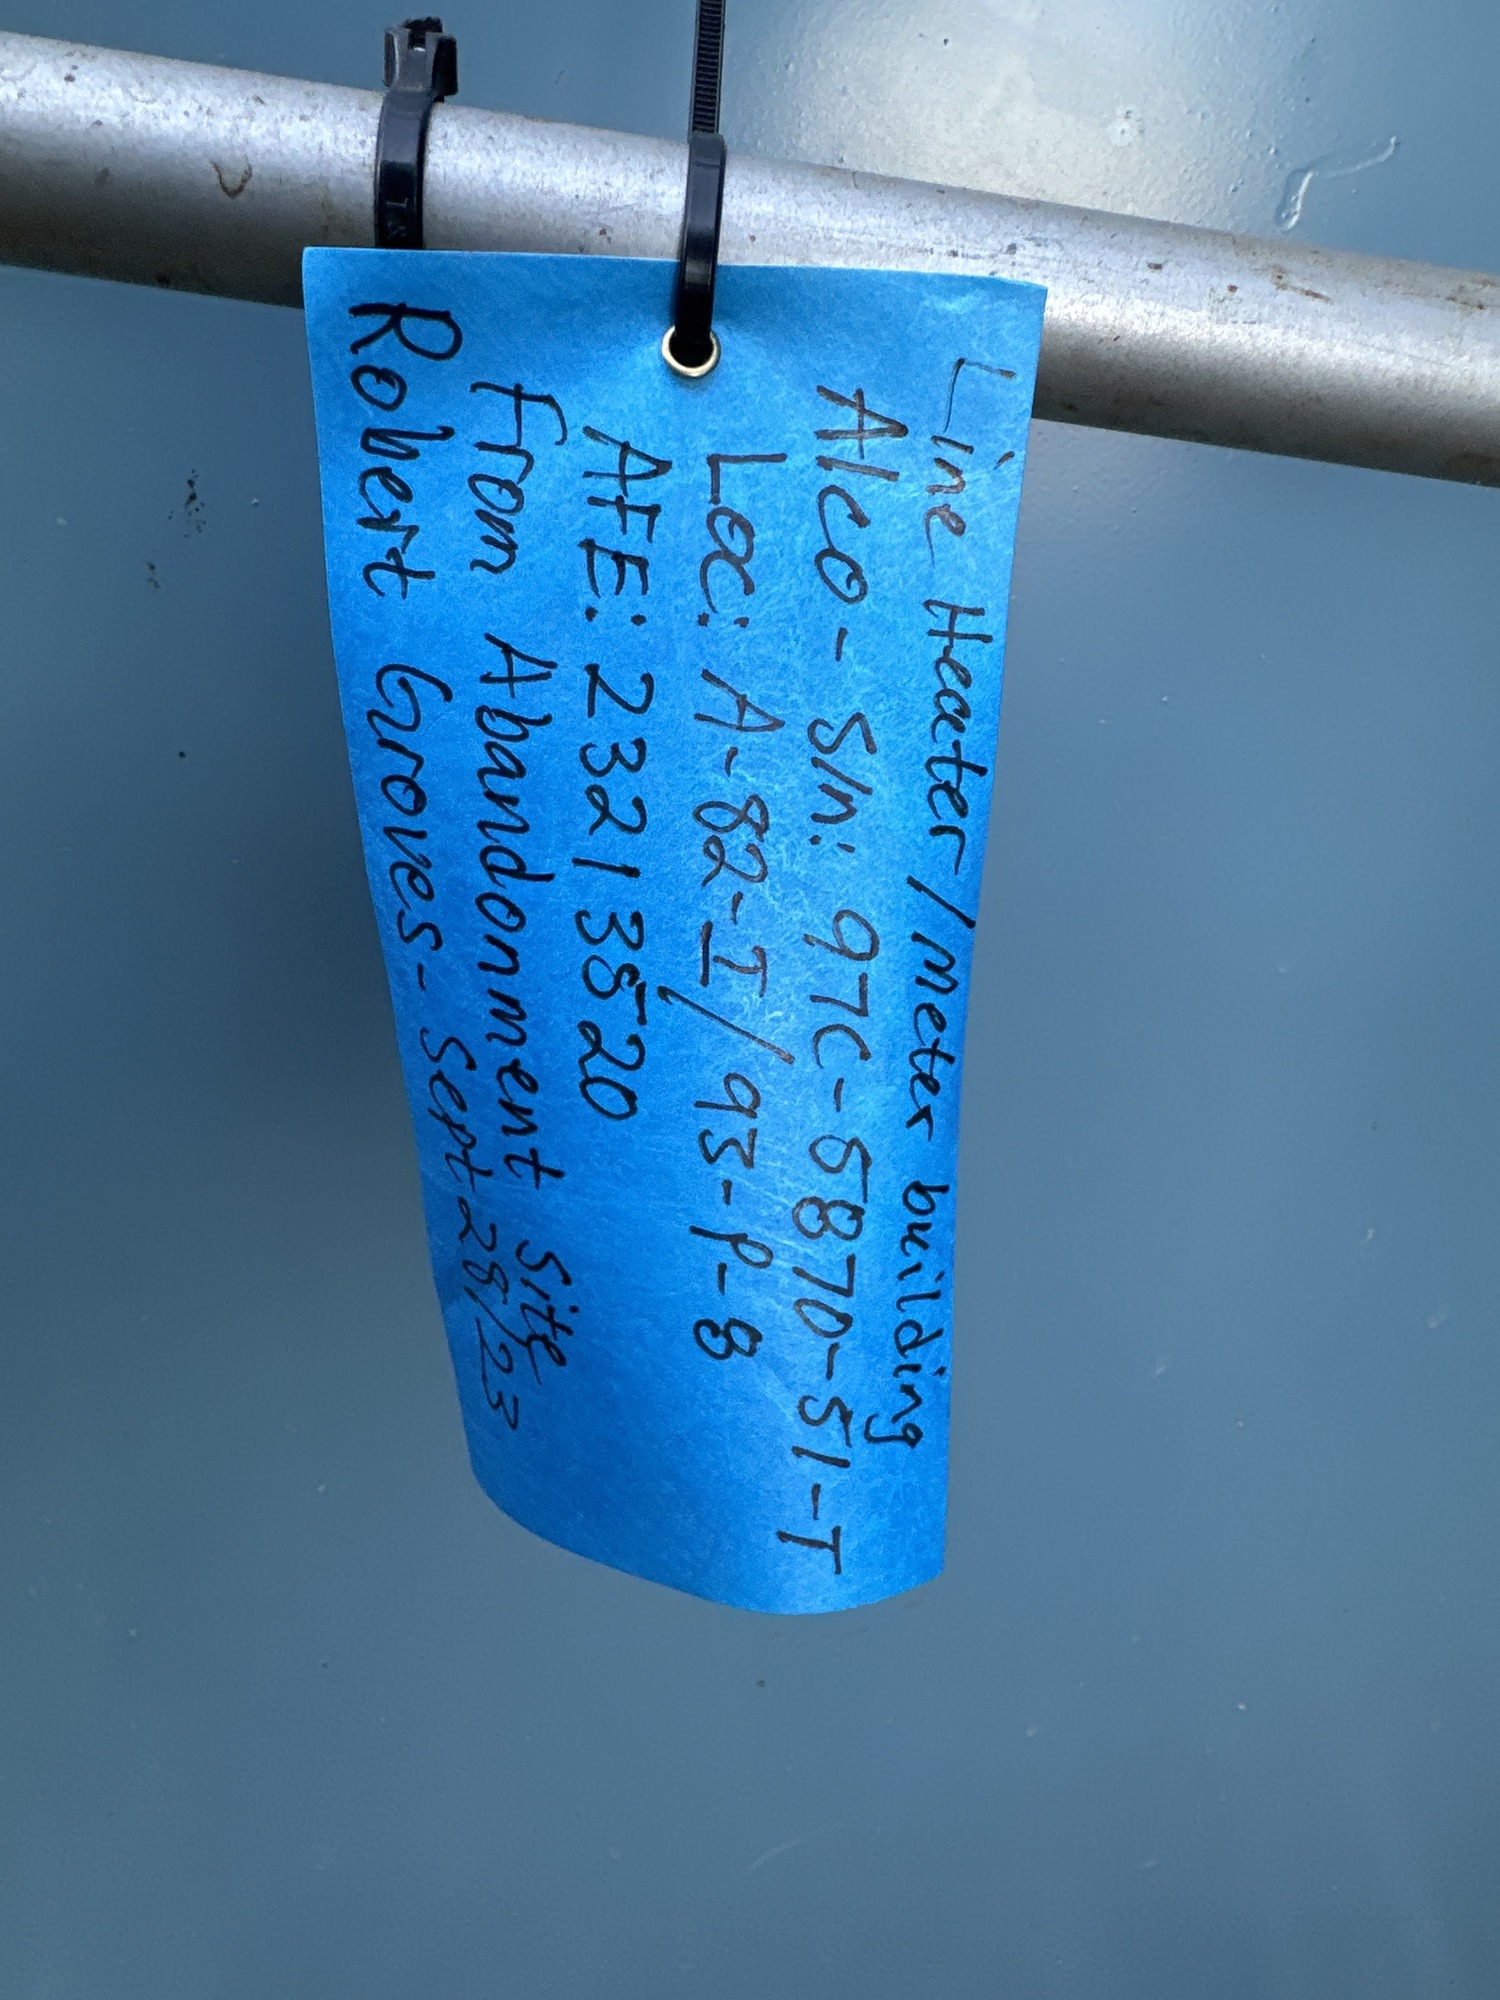 Line Heater / Meter building
Alco - S/n: 97C-5870-51-T
Loc: A-82-I / 93-P-8
AFE: 23213520
From Abandonment Site
Robert Groves - Sept 28/23